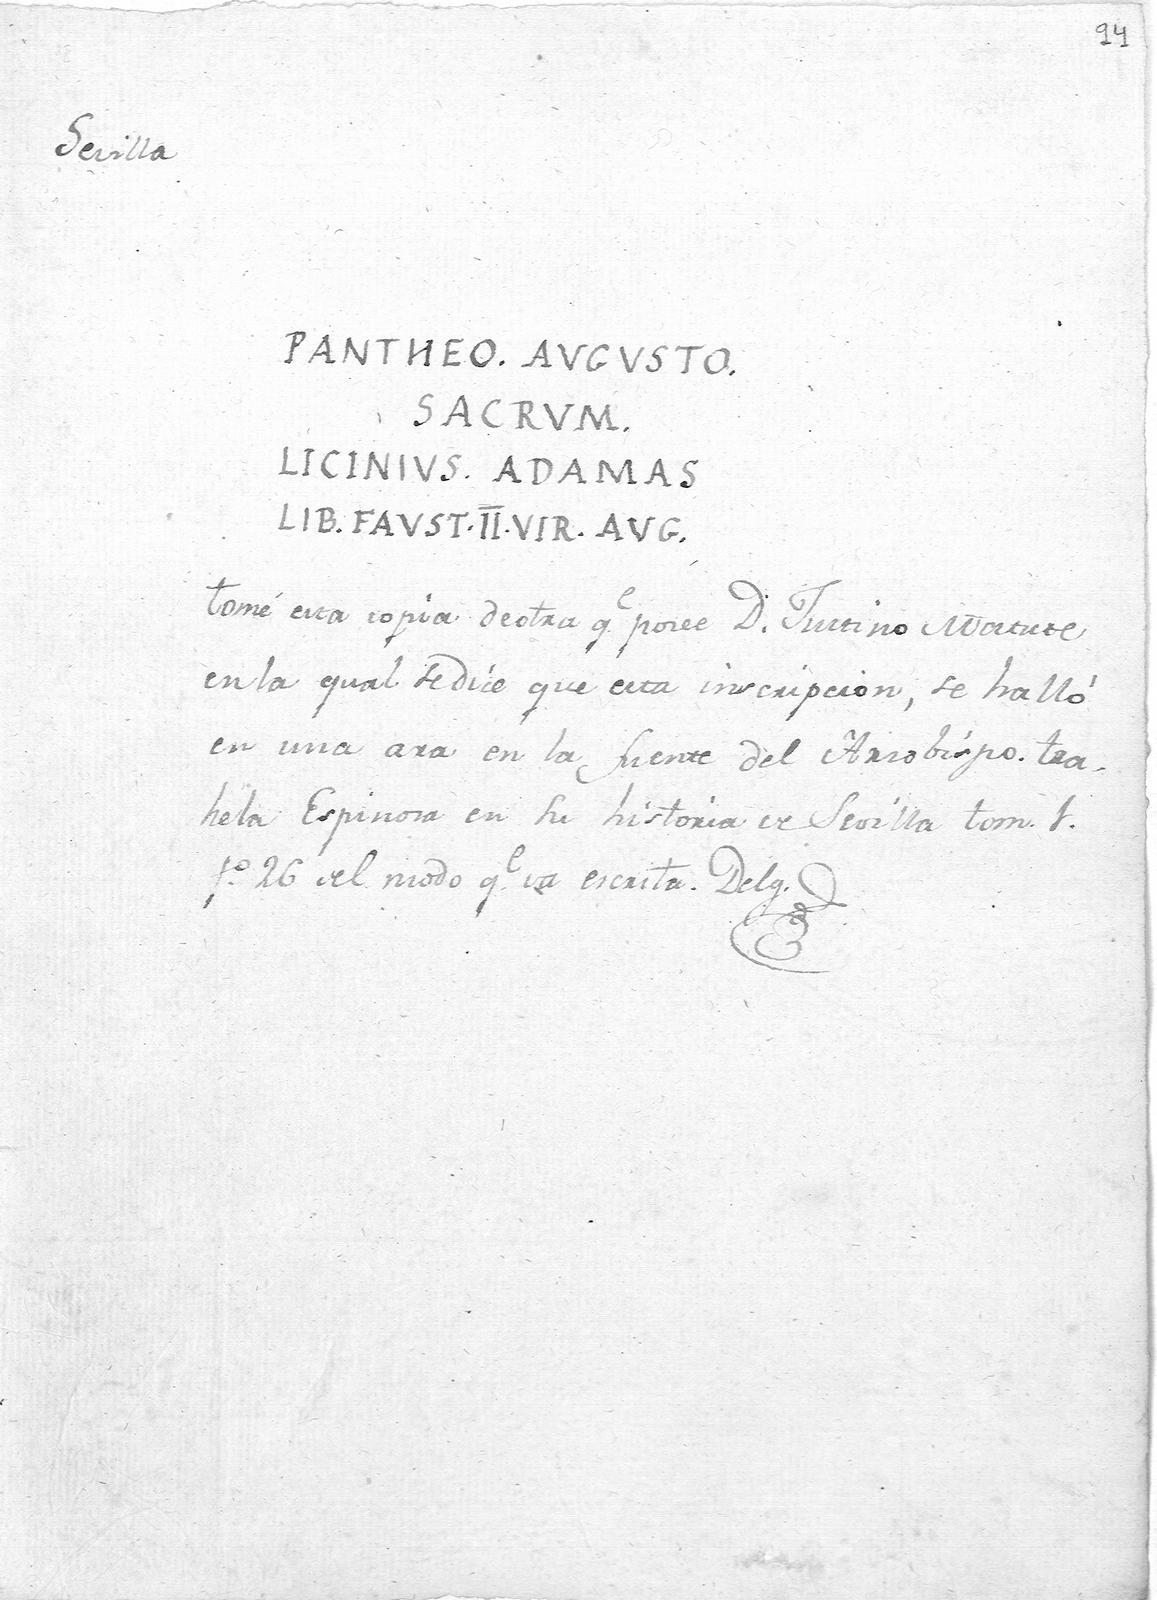 94
Sevilla
PANTHEO. AVGVSTO.
SACRVM.
LICINIVS. ADAMAS
LIB. FAVST. II. VIR. AVG.
tomé esta copia de otra q.e posee D. Justino Matute
en la qual se dice que esta inscripcion, se halló
en una ara en la fuente del Arzobispo. tra-
hela Espinosa en su historia de Sevilla tom. 1.
f.o 26 del modo q.e va escrita. Delg.